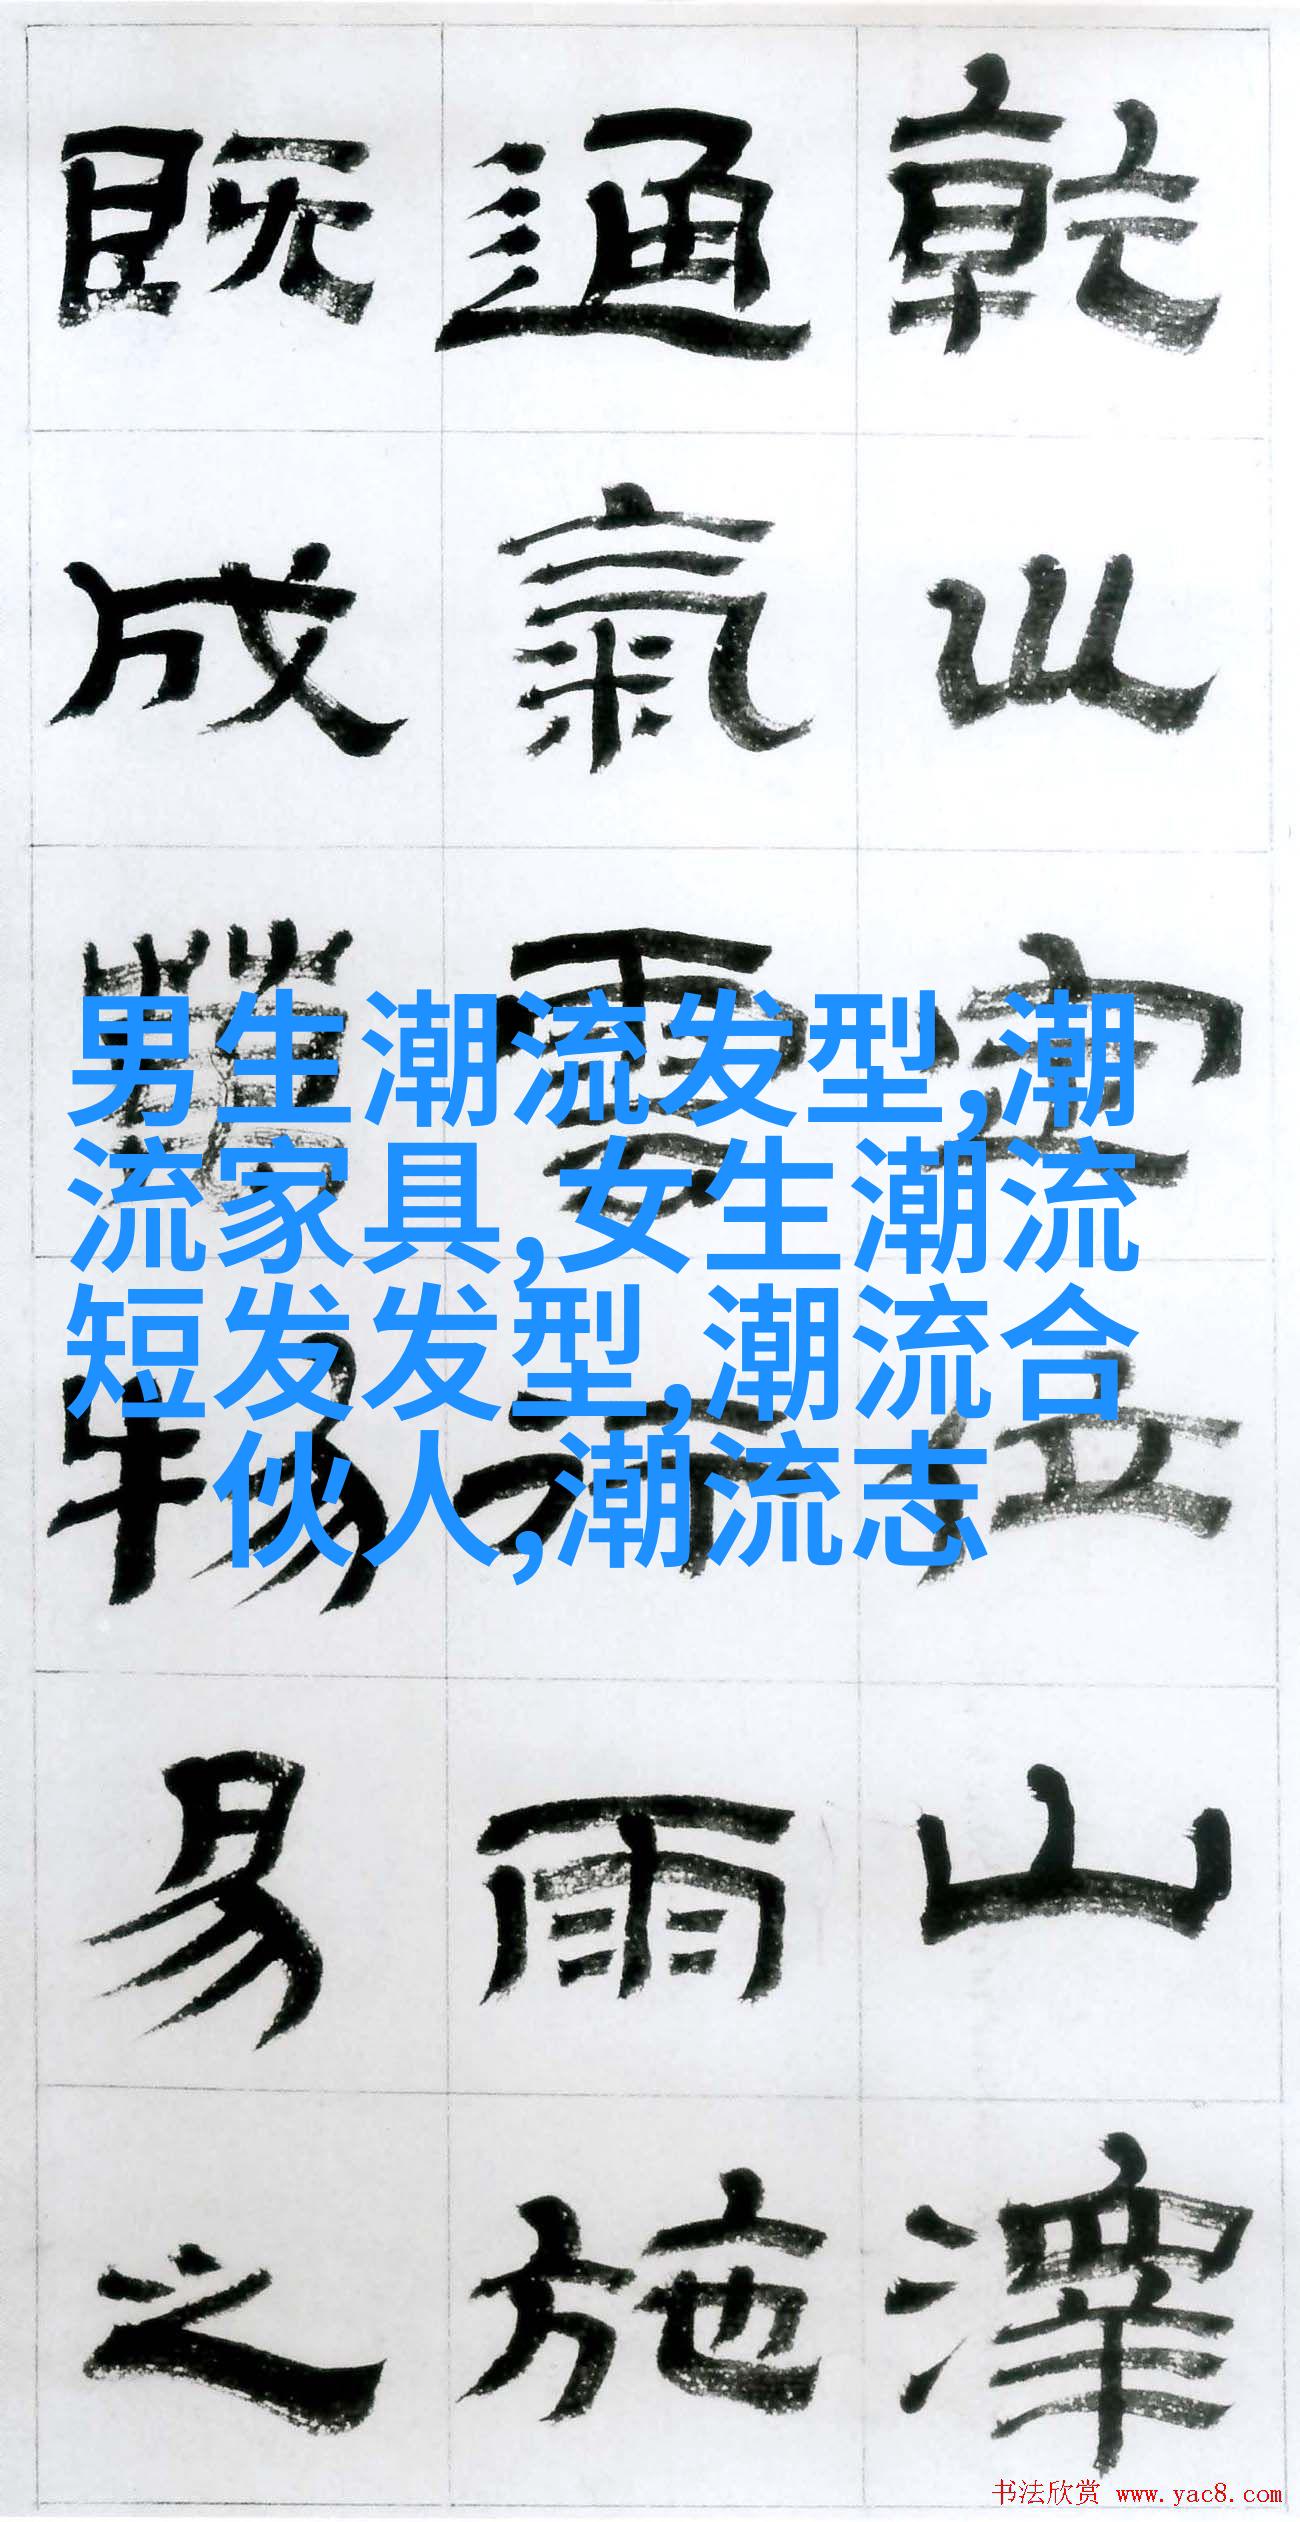 乾巛定位山澤
通氣雲行雨施
既成萬物易之
男生潮流发型,潮
流家具,女生潮流
短发发型,潮流合
伙人,潮流志
书法欣赏 www.yac8.com